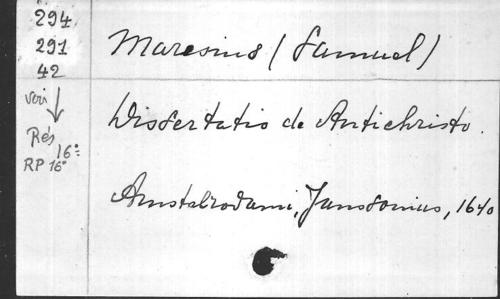 294
291
42
voir
Rés
16°
RP 16°
Maresius (Samuel)
Dissertatio de Antichristo.
Amstelrodami, Janssonius, 1640